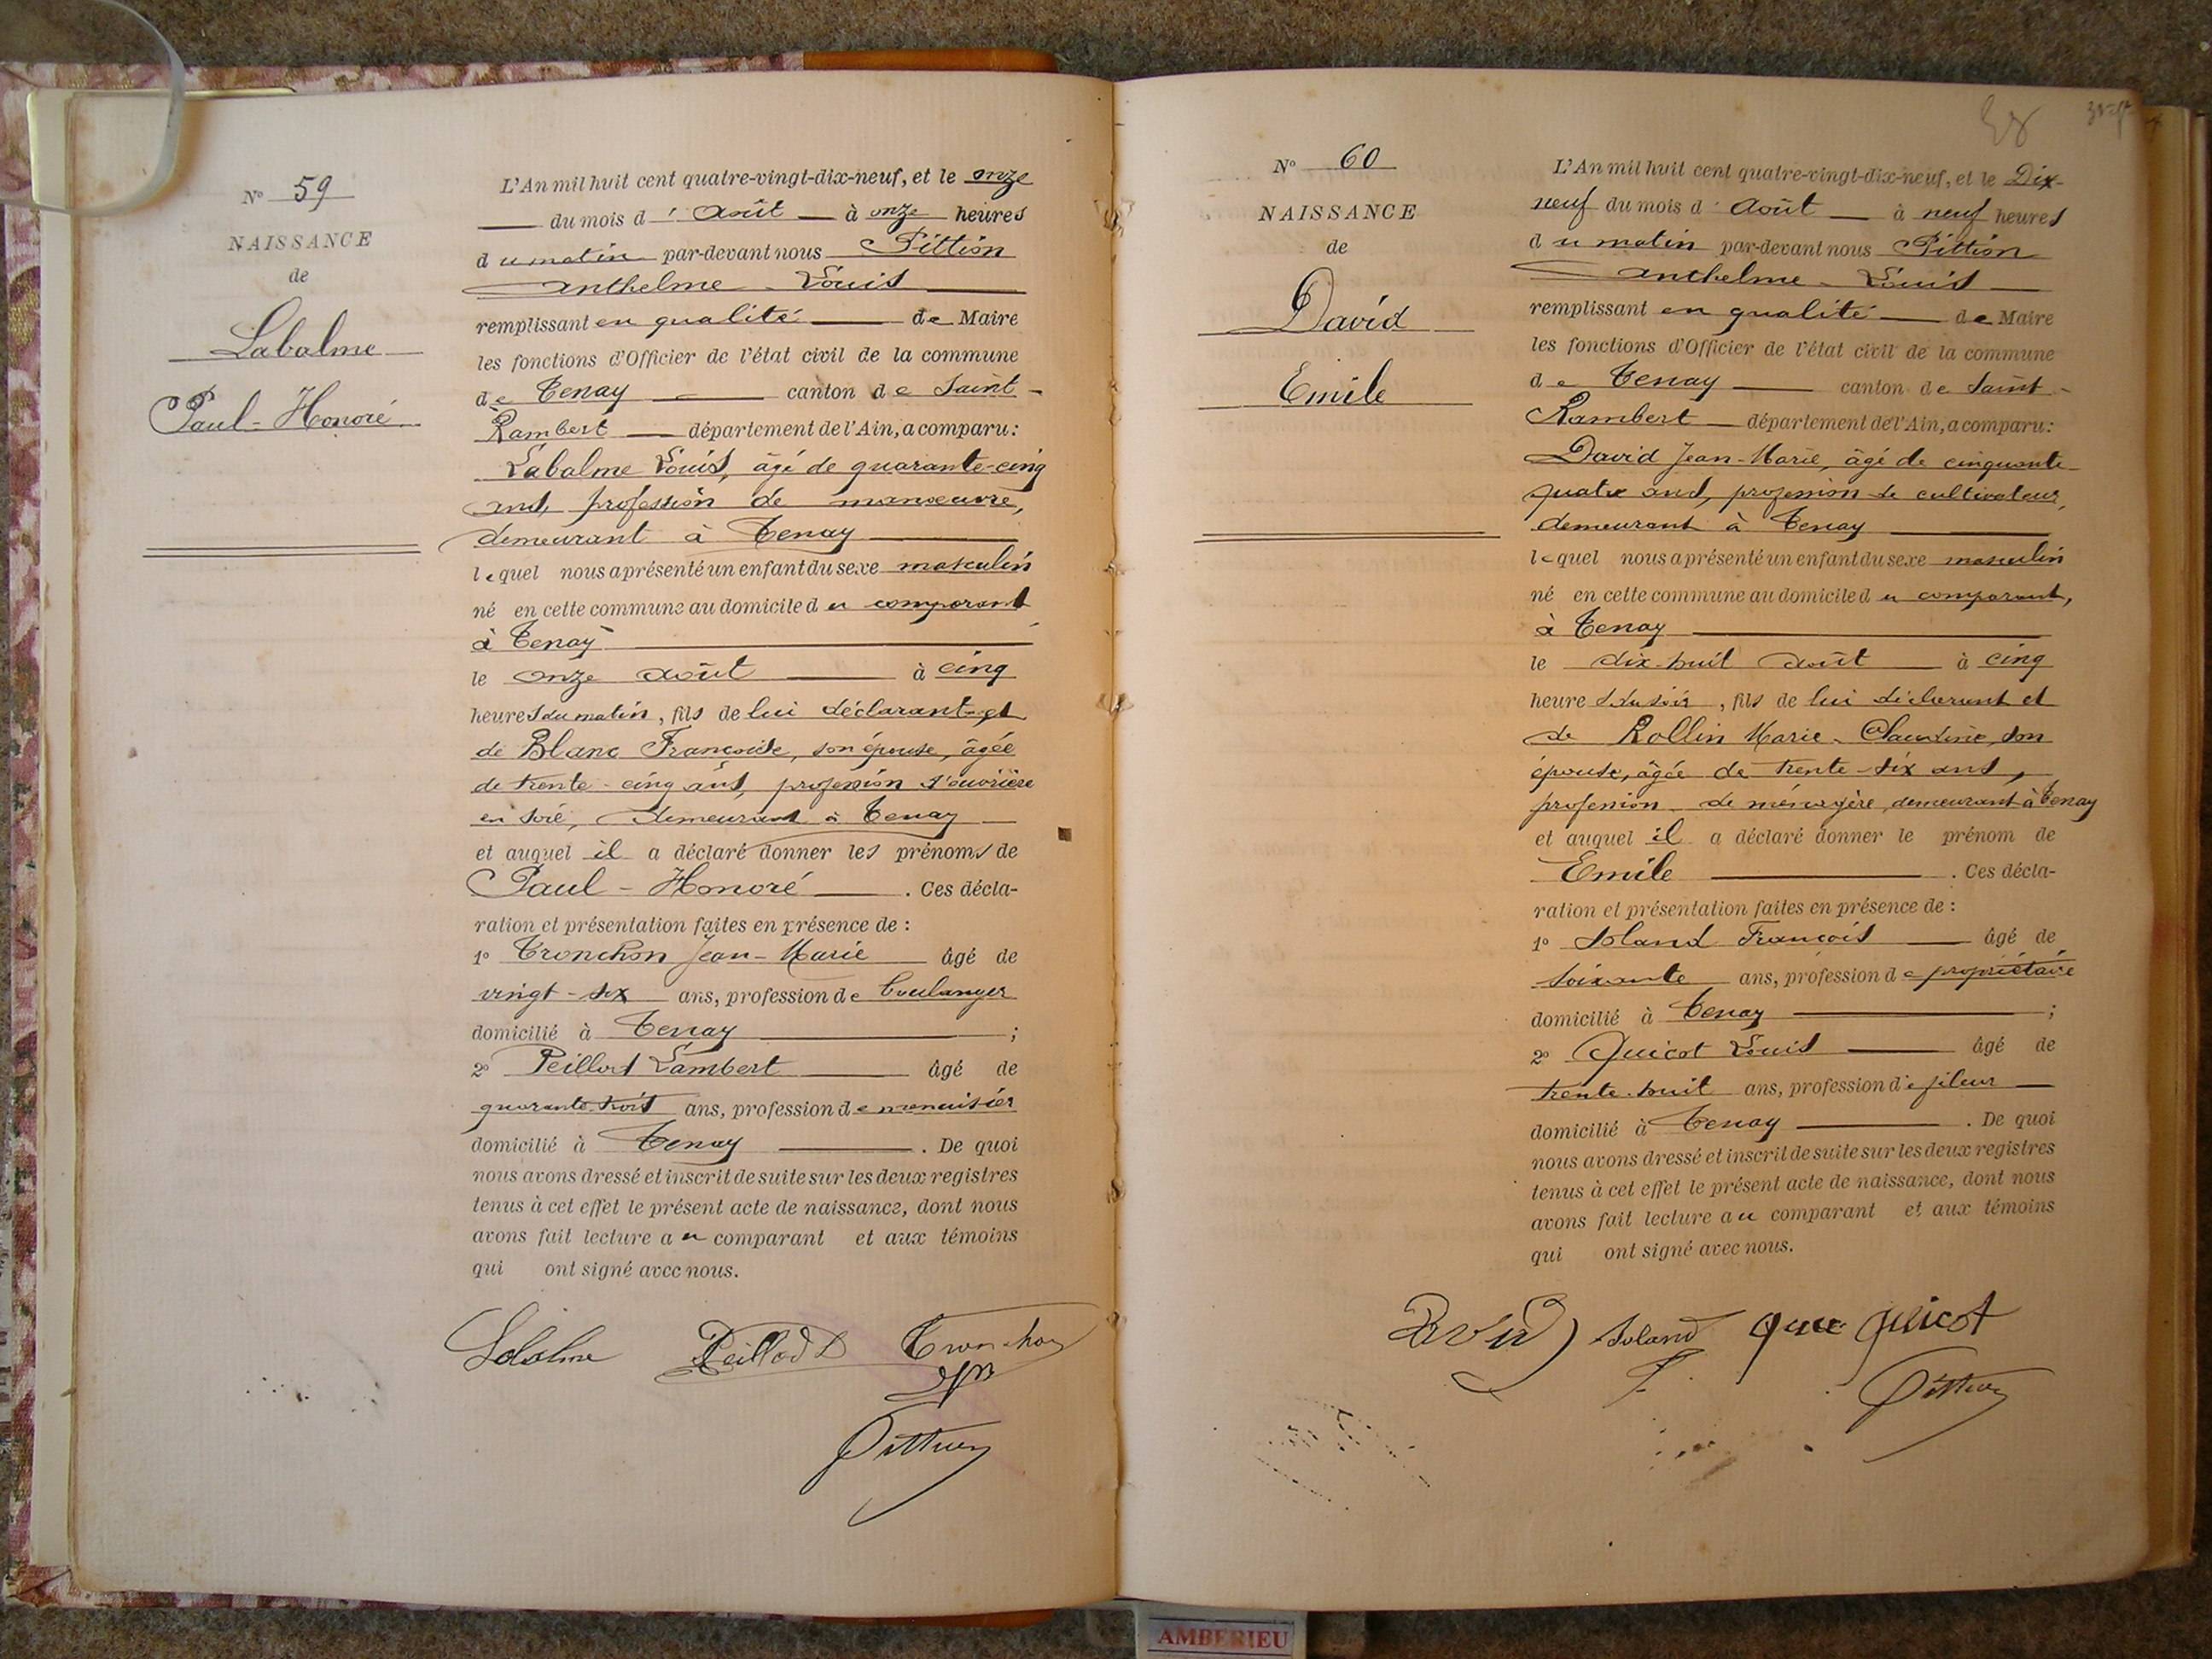 N° 59
NAISSANCE
de
Labalme
Paul-Honoré
L'An mil huit cent quatre-vingt-dix-neuf, et le onze
du mois d' août à onze heures
du matin par-devant nous Pittion
Anthelme-Louis
remplissant en qualité de Maire
les fonctions d'Officier de l'état civil de la commune
de Tenay canton de Saint-
Rambert département de l'Ain, a comparu:
Labalme Louis, âgé de quarante-cinq
ans, profession de manœuvre,
demeurant à Tenay
lequel nous a présenté un enfant du sexe masculin
né en cette commune au domicile du comparant
à Tenay
le onze août à cinq
heures du matin, fils de lui déclarant et
de Blanc Françoise, son épouse, âgée
de trente-cinq ans, profession d'ouvrière
en soie, demeurant à Tenay
et auquel il a déclaré donner les prénoms de
Paul-Honoré. Ces décla-
ration et présentation faites en présence de :
1° Tronchon Jean-Marie âgé de
vingt-six ans, profession de boulanger
domicilié à Tenay ;
2° Peillod Lambert âgé de
quarante-trois ans, profession de menuisier
domicilié à Tenay. De quoi
nous avons dressé et inscrit de suite sur les deux registres
tenus à cet effet le présent acte de naissance, dont nous
avons fait lecture au comparant et aux témoins
qui ont signé avec nous.
Labalme Peillod Tronchon
Pittion
N° 60
NAISSANCE
de
David
Emile
L'An mil huit cent quatre-vingt-dix-neuf, et le Dix-
neuf du mois d' Août à neuf heures
du matin par-devant nous Pittion
Anthelme-Louis
remplissant en qualité de Maire
les fonctions d'Officier de l'état civil de la commune
de Tenay canton de Saint-
Rambert département de l'Ain, a comparu:
David Jean-Marie, âgé de cinquante-
quatre ans, profession de cultivateur,
demeurant à Tenay
lequel nous a présenté un enfant du sexe masculin
né en cette commune au domicile du comparant,
à Tenay
le dix-huit août à cinq
heures du soir, fils de lui déclarant et
de Rollin Marie-Claudine, son
épouse, âgée de trente-six ans,
profession de ménagère, demeurant à Tenay
et auquel il a déclaré donner le prénom de
Emile. Ces décla-
ration et présentation faites en présence de :
1° Soland François âgé de
soixante ans, profession de propriétaire
domicilié à Tenay ;
2° Quicot Louis âgé de
trente-huit ans, profession de fileur
domicilié à Tenay. De quoi
nous avons dressé et inscrit de suite sur les deux registres
tenus à cet effet le présent acte de naissance, dont nous
avons fait lecture au comparant et aux témoins
qui ont signé avec nous.
David Soland Quicot
Pittion
AMBERIEU